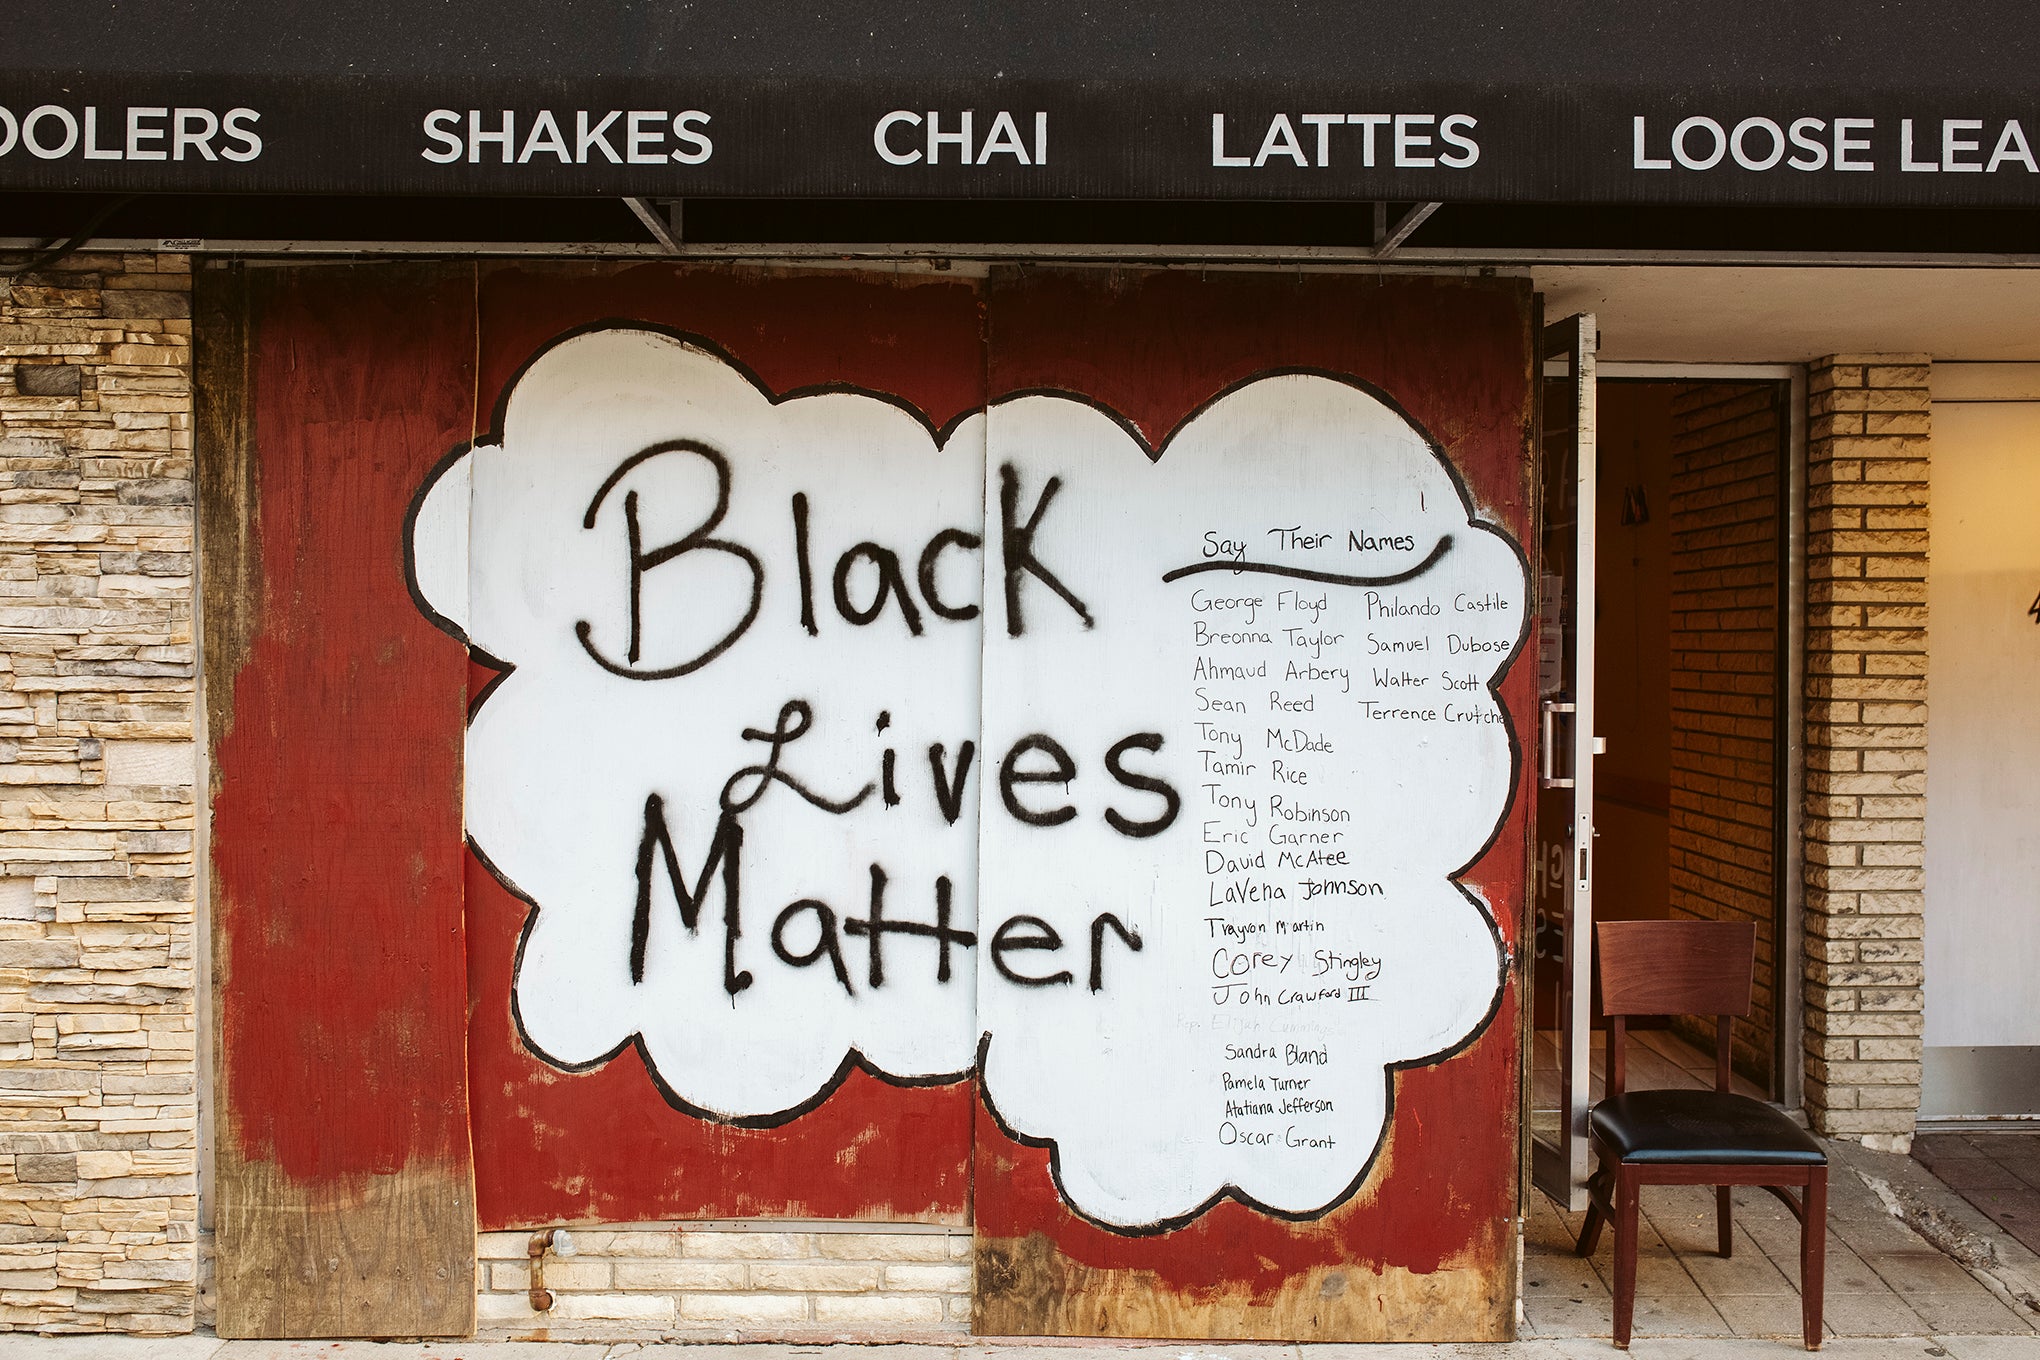 OOLERS SHAKES CHAI LATTES LOOSE LEA
Black
Lives
Matter
Say Their Names
George Floyd
Breonna Taylor
Ahmaud Arbery
Sean Reed
Tony McDade
Tamir Rice
Tony Robinson
Eric Garner
David McAtee
LaVena Johnson
Trayvon Martin
Corey Stingley
John Crawford III
Rep. Elijah Cummings
Sandra Bland
Pamela Turner
Atatiana Jefferson
Oscar Grant
Philando Castile
Samuel Dubose
Walter Scott
Terrence Crutche